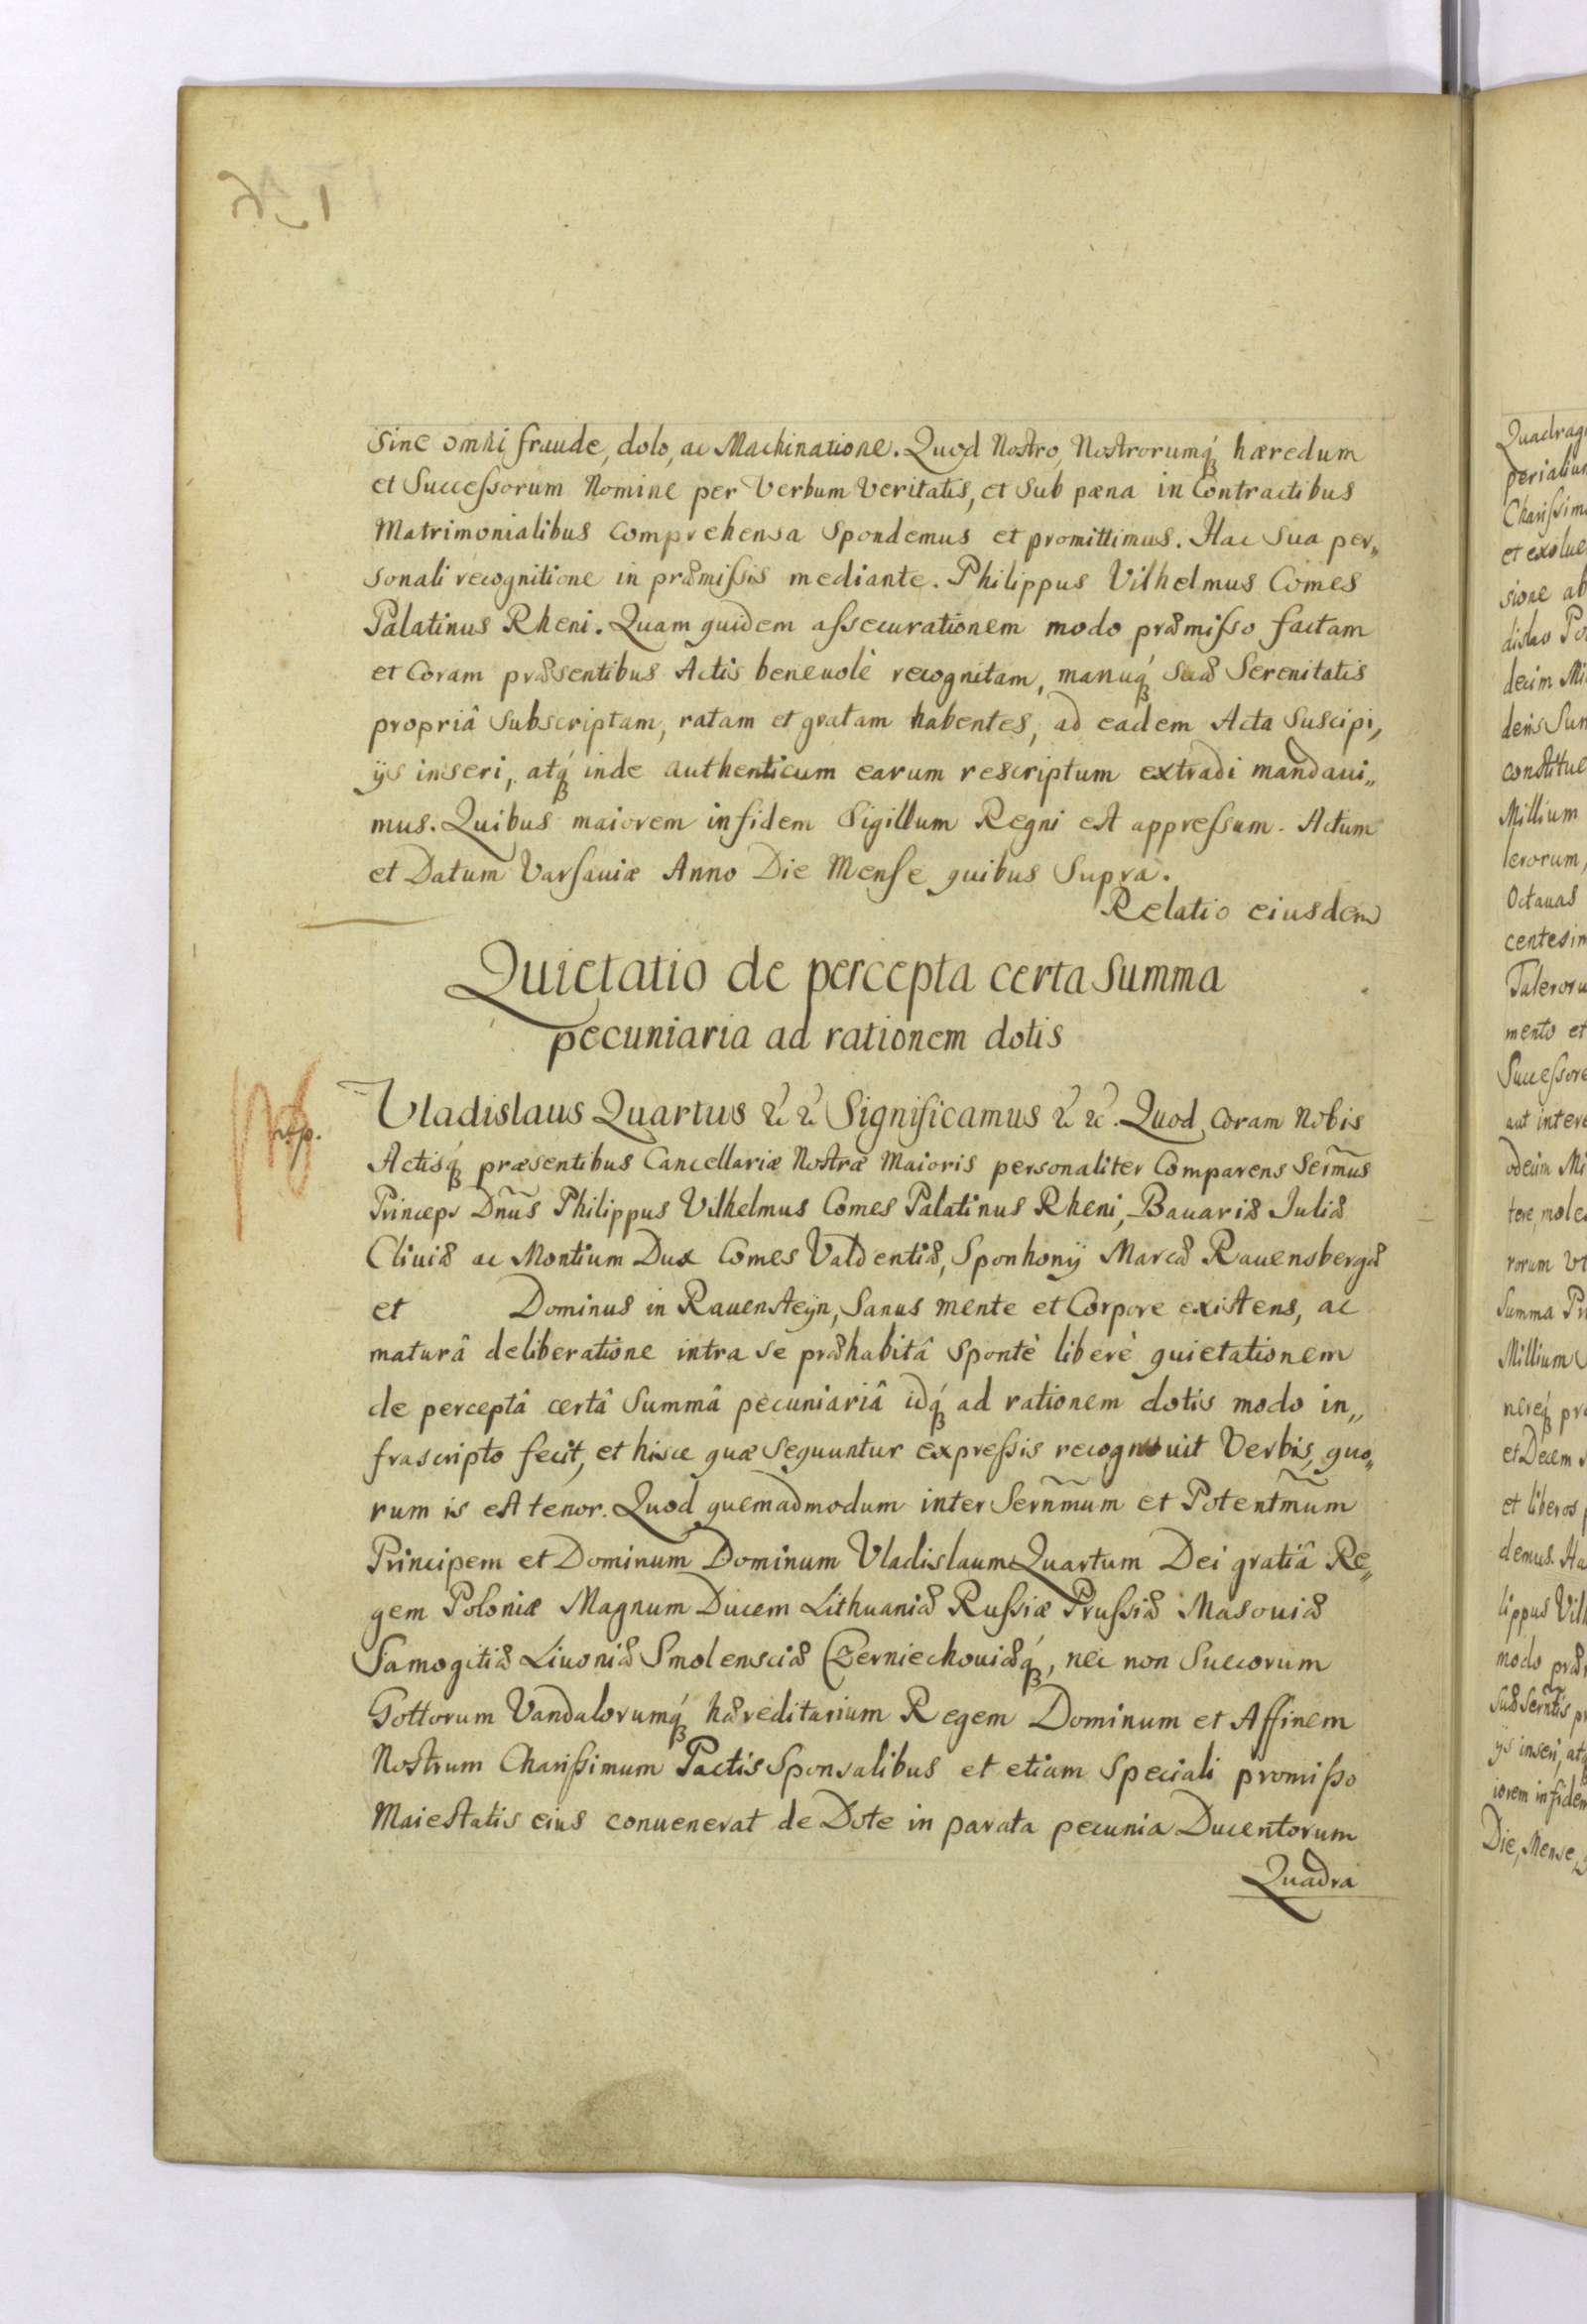 Sine omni fraude, dolo, ac Machinatione. Quod Nostro, Nostrorumq́ hæredum
et Succeſsorum Nomine per Verbum Veritatis, et Sub pæna in Contractibus
Matrimonialibus Comprehensa Spondemus et promittimus. Hac Sua per„
Sonali recognitione in præmiſsis mediante. Philippus Vilhelmus Comes
Palatinus Rheni. Quam quidem aſsecurationem modo præmiſso factam
et Coram præsentibus Actis beneuolè recognitam, manuq́ Suæ Serenitatis
propriâ Subscriptam, ratam et gratam habentes, ad eadem Acta Suscipi,
ijs inseri, atq́ inde authenticum earum rescriptum extradi mandaui„
mus. Quibus maiorem in fidem Sigillum Regni est appreſsum. Actum
et Datum Varſauiæ Anno Die Menſe quibus Supra.
Relatio eiusdem
Quietatio de percepta certa Summa
pecuniaria ad rationem dotis
Vladislaus Quartus &c &c Significamus &c &c. Quod Coram Nobis
Actisq́ præsentibus Cancellariæ Nostræ Maioris personaliter Comparens Serm̃us
Princeps Dnũs Philippus Vilhelmus Comes Palatinus Rheni, Bauariæ Juliæ
Cliuiæ ac Montium Dux Comes Valdentiæ, Sponhonij Marcæ Rauensbergæ
et Dominus in Rauensteijn, Sanus mente et Corpore existens, ac
maturâ deliberatione intra se præhabitâ Spontè liberè quietationem
de perceptâ certâ Summâ pecuniariâ idq́ ad rationem dotis modo in„
frascripto fecit, et hisce quæ Sequuntur expreſsis recognouit Verbis, quo„
rum is est tenor. Quod quemadmodum inter Sernm̃um et Potentm̃um
Principem et Dominum Dominum Vladislaum Quartum Dei gratiâ Re„
gem Poloniæ Magnum Ducem Lithuaniæ Ruſsiæ Pruſsiæ Masouiæ
Samogitiæ Liuoniæ Smolensciæ Czerniechouiæq́, nec non Suecorum
Gottorum Vandalorumq́ hæreditarium Regem Dominum et Affinem
Nostrum Chariſsimum Pactis Sponsalibus et etiam Speciali promiſso
Maiestatis eius conuenerat de Dote in parata pecunia Ducentorum
Quadra